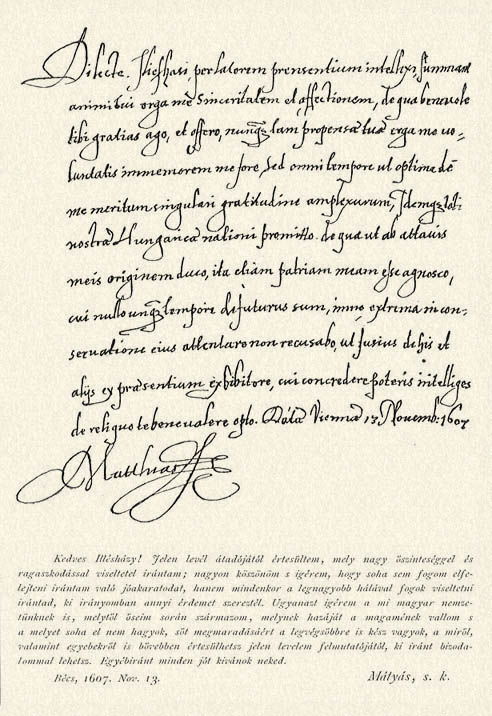 Dilecte Illeshasi, per latorem prensentium intellexi, summam
animi tui erga me sinceritatem et affectionem, de qua benevole
tibi gratias ago, et offero, nunq3 tam propensæ tuæ erga me vo=
luntatis immemorem me fore, sed omni tempore ut optime de
me meritum singulari gratitudine amplexurum, Idemq3 toti
nostræ Hungaricæ nationi promitto. de qua ut ab attavis
meis originem duco, ita etiam patriam meam esse agnosco,
cui nullo unq3 tempore difuturus sum, immo extrema in con=
servatione eius attentare non recusabo, ut fusius de his et
alijs ex præsentium exhibitore, cui concredere poteris intelliges
de reliquo te bene valere opto. Data Viennæ 13 Novemb: 1607
Matthias
Kedves Illésházy! Jelen levél átadójától értesültem, mely nagy őszinteséggel és
ragaszkodással viseltetel irántam; nagyon köszönöm s igérem, hogy soha sem fogom elfe-
lejteni irántam való jóakaratodat, hanem mindenkor a legnagyobb hálával fogok viseltetni
irántad, ki irányomban annyi érdemet szereztél. Ugyanazt igérem a mi magyar nemze-
tünknek is, melytől őseim során származom, melynek hazáját a magamének vallom s
a melyet soha el nem hagyok, sőt megmaradásáért a legvégsőbbre is kész vagyok, a miről,
valamint egyebekről is bővebben értesülhetsz jelen levelem felmutatójától, ki iránt bizoda-
lommal lehetsz. Egyébiránt minden jót kívánok neked.
Bécs, 1607. Nov. 13.
Mátyás, s. k.